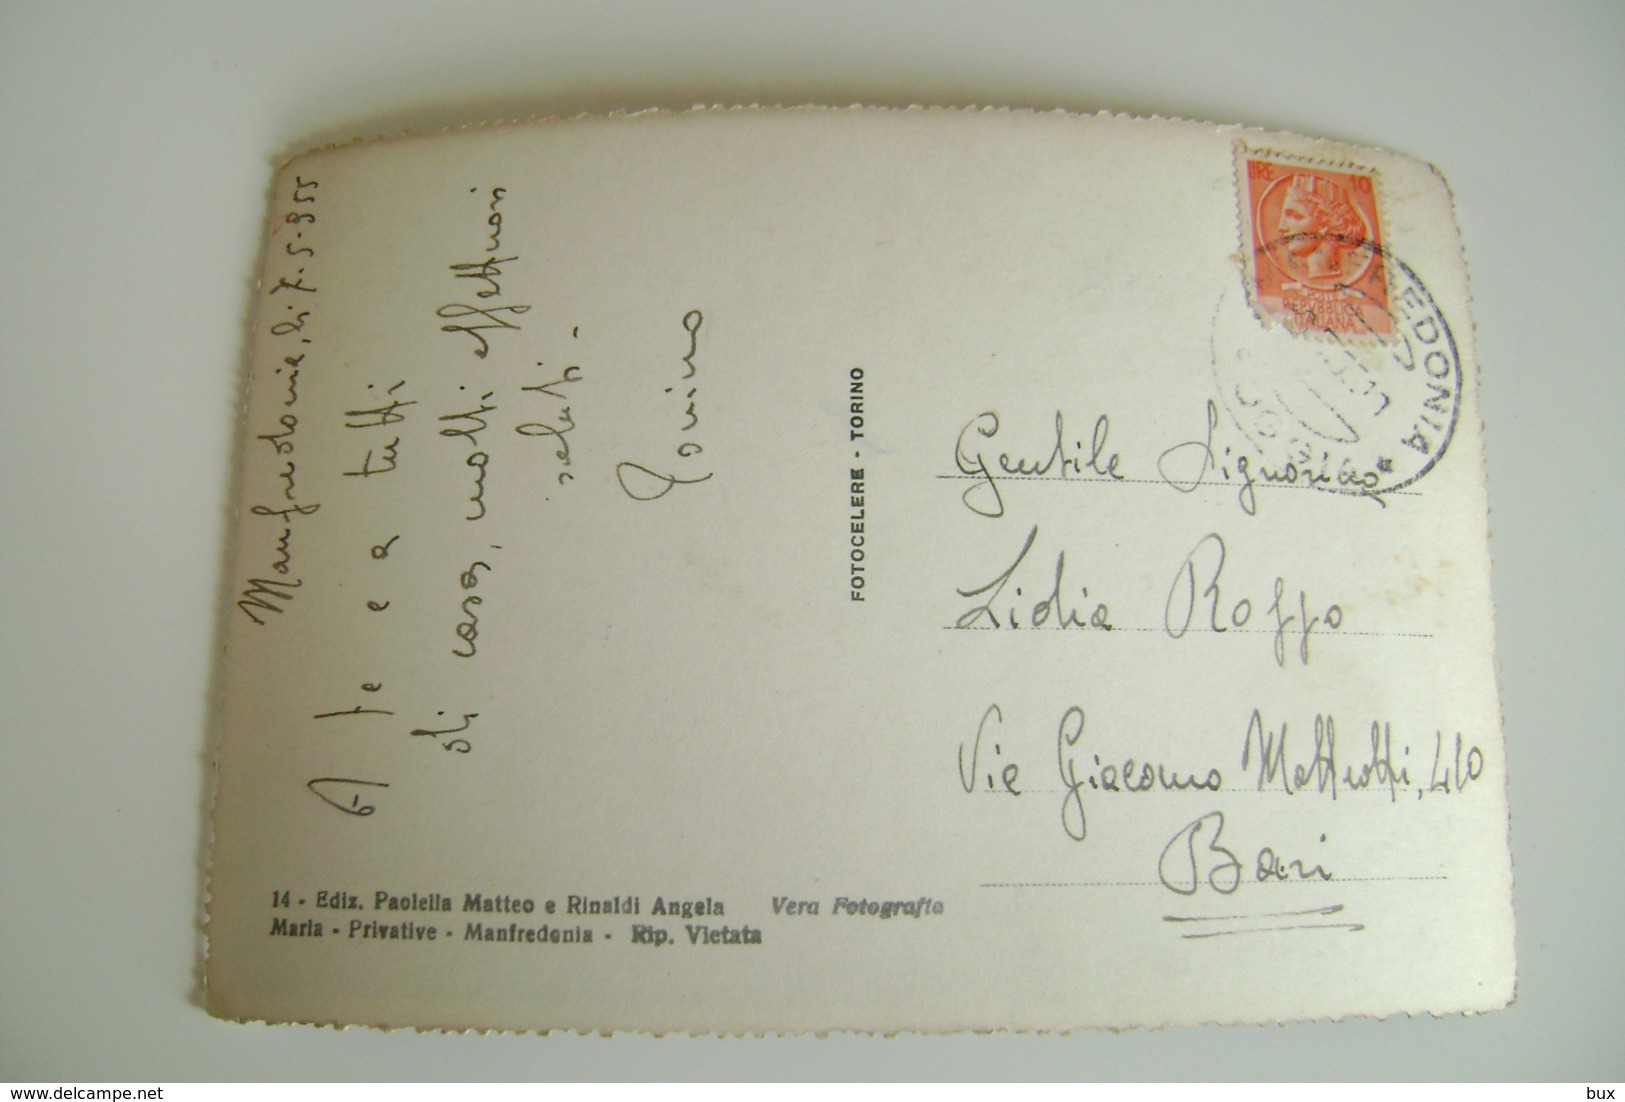 Manfredonia, li 7-5-955
A te e a tutti
di casa, molti affettuosi
saluti -
FOTOCELERE - TORINO
LIRE 10
REPVBBLICA
ITALIANA
MANFREDONIA
Gentile Signorina
Lidia Roppo
Via Giacomo Matteotti, 40
Bari
14 - Ediz. Paolella Matteo e Rinaldi Angela Vera Fotografia
Maria - Privative - Manfredonia - Rip. Vietata
bux